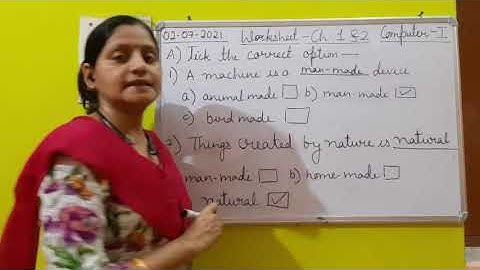 02-07-2021 Worksheet - Ch 1 & 2 Computer - I
A) Tick the correct option —
1) A machine is a man-made device
a) animal made ☐ b) man-made ☑
c) bird made ☐
2) Things created by nature is natural
man-made ☐ b) home-made ☐
natural ☑